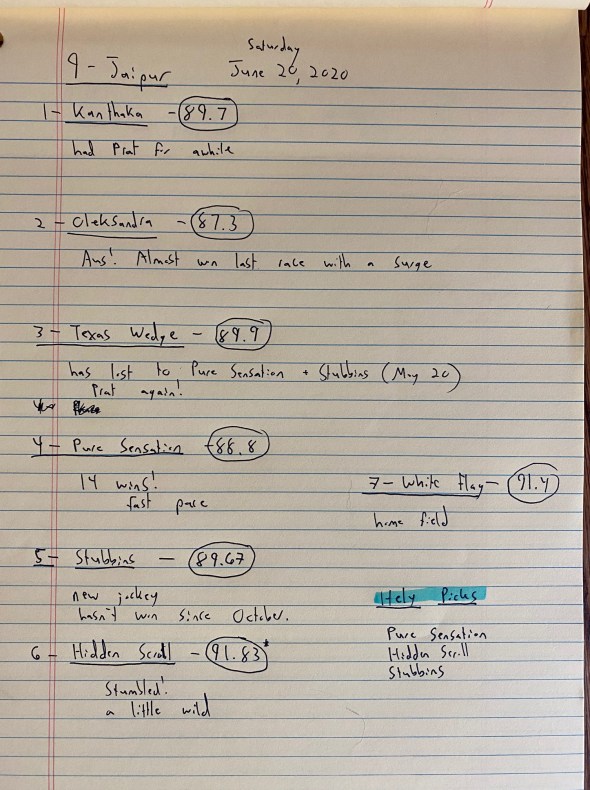 Saturday
9 - Jaipur June 20, 2020
1 - Kanthaka - 89.7
had Prat for awhile
2 - Oleksandra - 87.3
Aus! Almost won last race with a surge
3 - Texas Wedge - 89.9
has lost to Pure Sensation + Stubbins (May 20)
Prat again!
4 - Pure Sensation - 88.8
14 wins!
fast pace
7 - White Flag - 91.4
home field
5 - Stubbins - 89.67
new jockey
hasn't win since October.
6 - Hidden Scroll - 91.83*
Stumbled!
a little wild
Hely Picks
Pure Sensation
Hidden Scroll
Stubbins